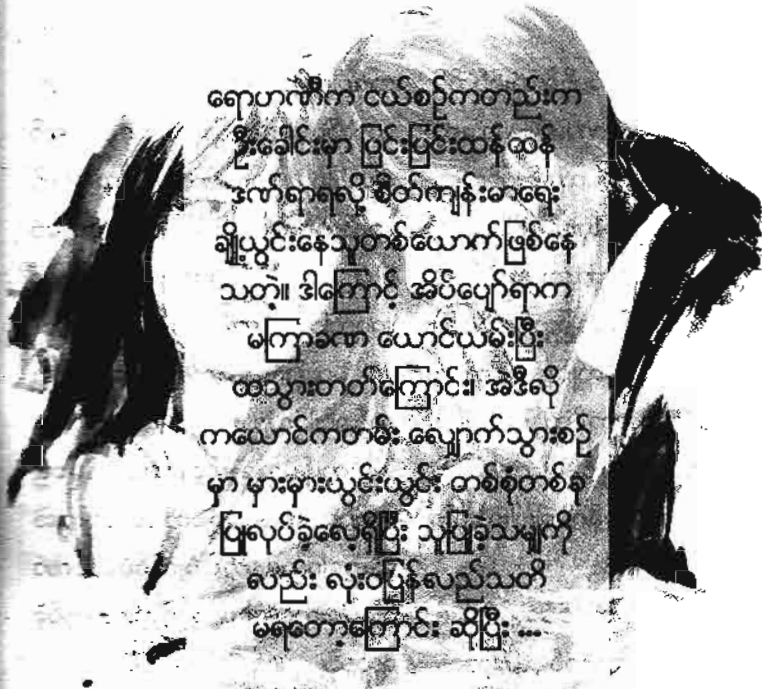 ရောဟဏီက ငယ်စဉ်ကတည်းက
ဦးခေါင်းမှာ ပြင်းပြင်းထန်ထန်
ဒဏ်ရာရလို့ စိတ်ကျန်းမာရေး
ချို့ယွင်းနေသူတစ်ယောက်ဖြစ်နေ
သတဲ့။ ဒါကြောင့် အိပ်ပျော်ရာက
မကြာခဏ ယောင်ယမ်းပြီး
ထသွားတတ်ကြောင်း၊ အဲဒီလို
ကယောင်ကတမ်း လျှောက်သွားစဉ်
မှာ မှားမှားယွင်းယွင်း တစ်စုံတစ်ခု
ပြုလုပ်ခဲ့လေ့ရှိပြီး သူပြုခဲ့သမျှကို
လည်း လုံးဝပြန်လည်သတိ
မရတော့ကြောင်း ဆိုပြီး ...